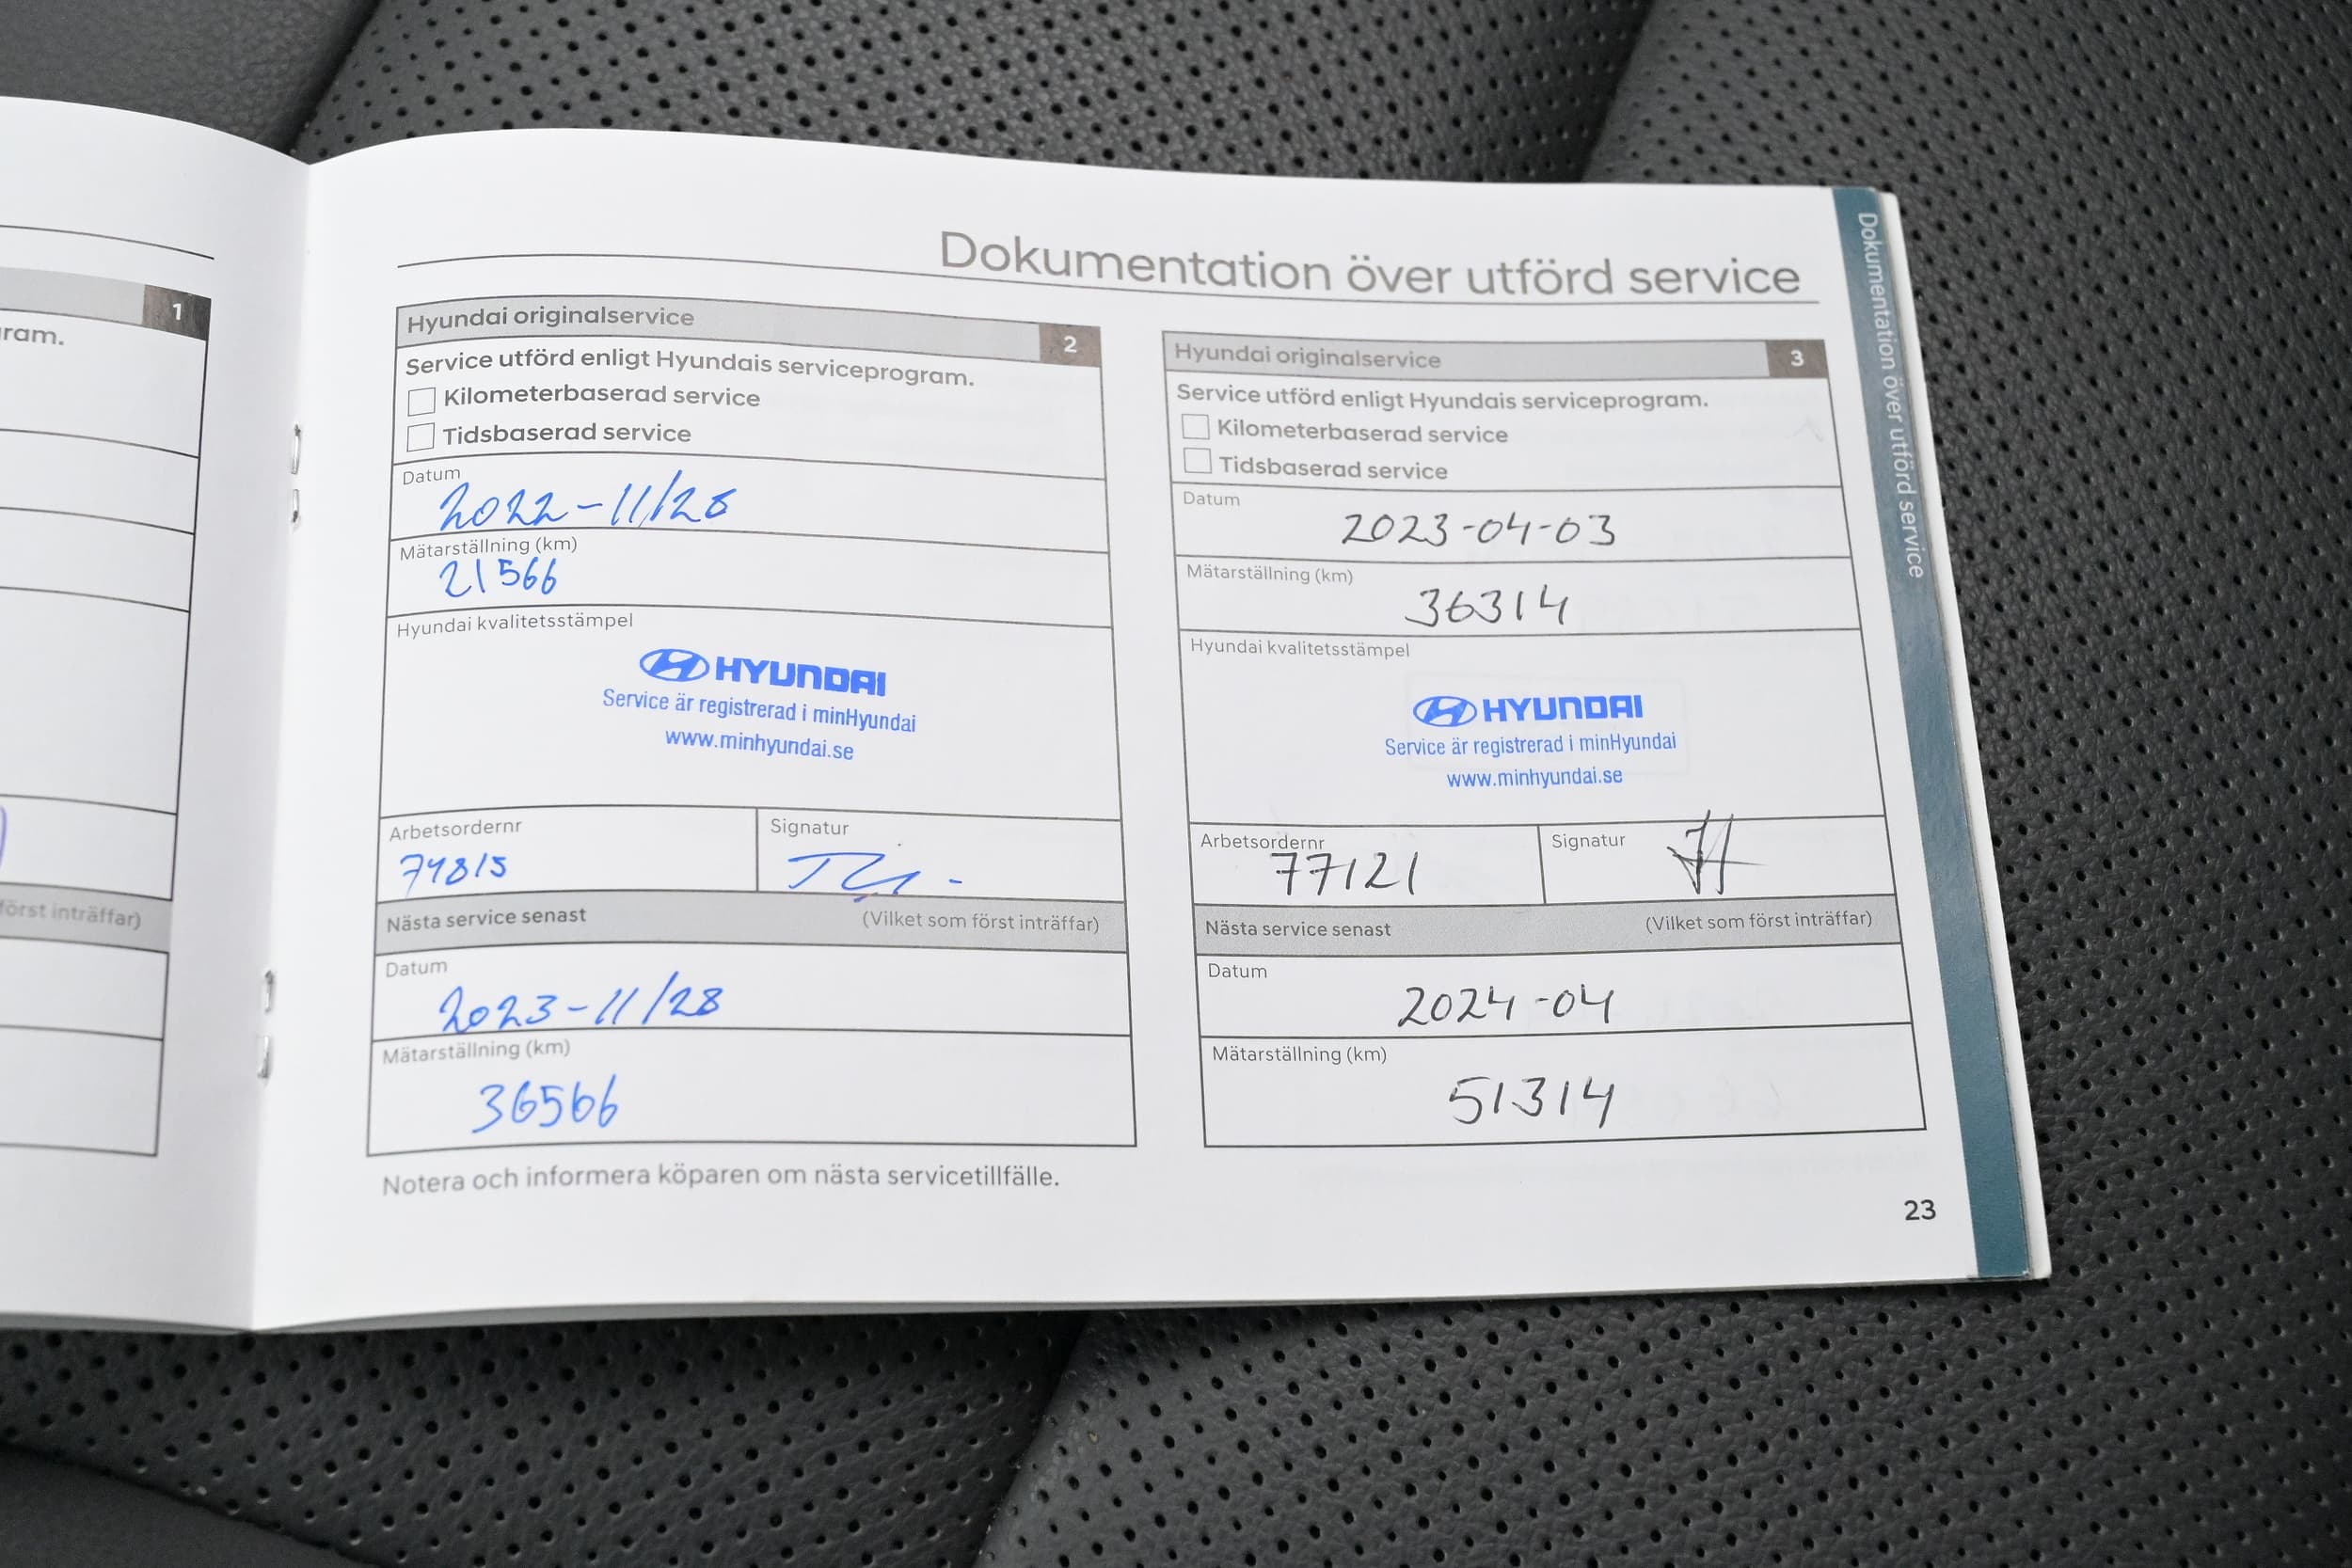 1
ram.
först inträffar)
Dokumentation över utförd service
Hyundai originalservice 2
Service utförd enligt Hyundais serviceprogram.
Kilometerbaserad service
Tidsbaserad service
Datum
2022-11/28
Mätarställning (km)
21566
Hyundai kvalitetsstämpel
HYUNDAI
Service är registrerad i minHyundai
www.minhyundai.se
Arbetsordernr Signatur
74815
Nästa service senast (Vilket som först inträffar)
Datum
2023-11/28
Mätarställning (km)
36566
Notera och informera köparen om nästa servicetillfälle.
Hyundai originalservice 3
Service utförd enligt Hyundais serviceprogram.
Kilometerbaserad service
Tidsbaserad service
Datum
2023-04-03
Mätarställning (km)
36314
Hyundai kvalitetsstämpel
HYUNDAI
Service är registrerad i minHyundai
www.minhyundai.se
Arbetsordernr Signatur
77121
Nästa service senast (Vilket som först inträffar)
Datum
2024-04
Mätarställning (km)
51314
23
Dokumentation över utförd service